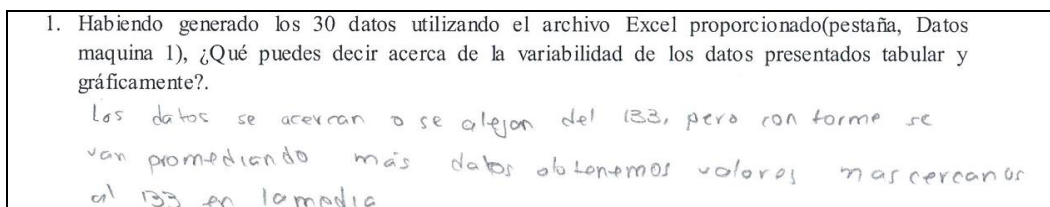 1. Habiendo generado los 30 datos utilizando el archivo Excel proporcionado(pestaña, Datos
maquina 1), ¿Qué puedes decir acerca de la variabilidad de los datos presentados tabular y
gráficamente?.
Los datos se acercan o se alejan del 133, pero conforme se
van promediando más datos obtenemos valores mas cercanos
al 133 en la media